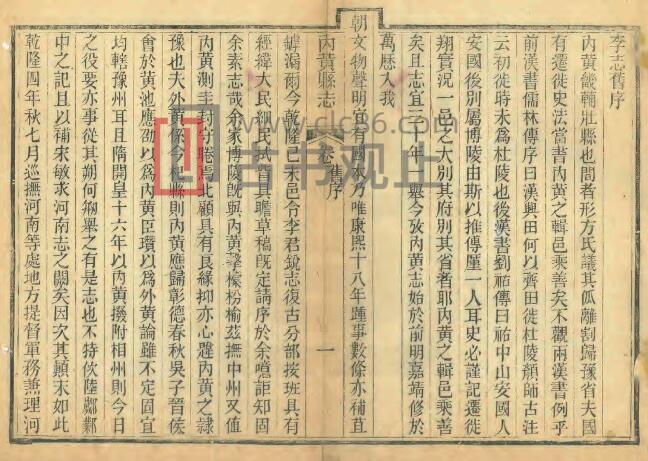 李志舊序
內黃畿輔壯縣也間者形方氏議其孤離割歸豫省夫國
有遷徙史法當書內黃之輯邑乘善矣不觀兩漢書例乎
前漢書儒林傳序曰漢興田何以齊田徙杜陵顏師古注
云初徙時未為杜陵也後漢書劉祐傳曰祐中山安國人
安國後別屬博陵由斯以推傳厪一人耳史必謹記遷徙
翔實況一邑之大別其府別其省者耶內黃之輯邑乘善
矣且志宜三十年一舉今攷內黃志始於前明嘉靖修於
萬歷入我
朝文物聲明宜有國本乃唯康熙十八年踵事數條亦補苴
內黃縣志
卷
舊序
一
罅漏爾今乾隆己未邑令李君銳志復古分部按班具有
經緯大民細民拭眥具瞻草稿既定請序於余噫詎知固
余素志哉余家博陵既與內黃擊榛枌榆茲撫中州又值
內黃測圭封守睠焉北顧具有良緣抑亦心韙內黃之隷
豫也夫外黃係今杞縣則內黃應歸彰德春秋吳子晉侯
會於黃池應劭以為內黃臣瓚以為外黃論雖不定固宜
均轄豫州耳且隋開皇十六年以內黃撥附相州則今日
之役要亦事從其朔何剏舉之有是志也不特佽陸鄴
中之記且以補宋敏求河南志之闕矣因次其顛末如此
乾隆四年秋七月巡撫河南等處地方提督軍務兼理河
www.clc86.com
古书观止